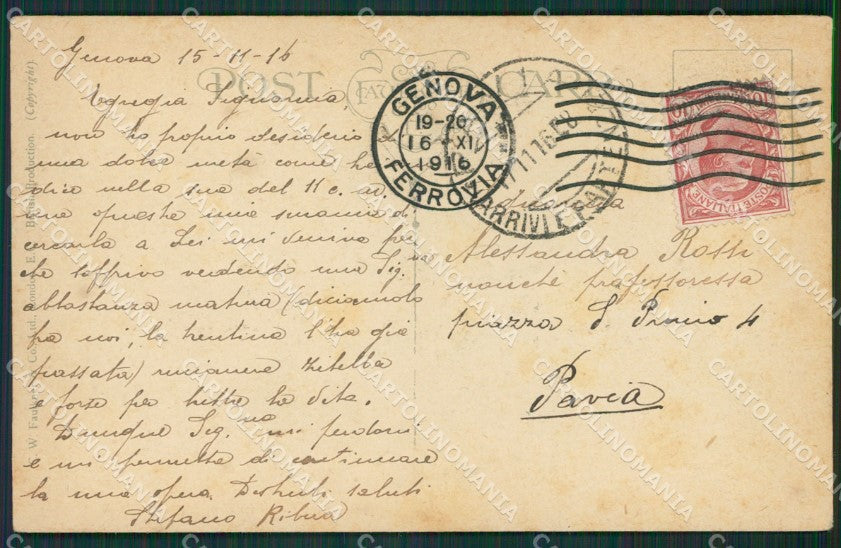 Genova 15-11-16
Egregia Signorina,
non ho proprio desiderio di
una dolce metà come
dice nella sua del 11 c.
queste mie smanie di
cercarla a Lei mi
che soffrivo vedendo una Sig.na
abbastanza matura (diciamolo
fra noi, la trentina l'ha già
passata) rimanere zitella
e forse per tutta la vita.
Dunque Sig.na mi perdoni
e mi permetta di continuare
la mia opera. Distinti saluti
Stefano
POST CARD
GENOVA
19-20
16 XI
1916
FERROVIA
ARRIVI E PARTENZE
POSTE ITALIANE
10
Alessandra Rossi
nonché professoressa
piazza S. 4
Pavia
W. Faulkner & Co. Ltd., London, E.C. British Production. (Copyright).
CARTOLINOMANIA